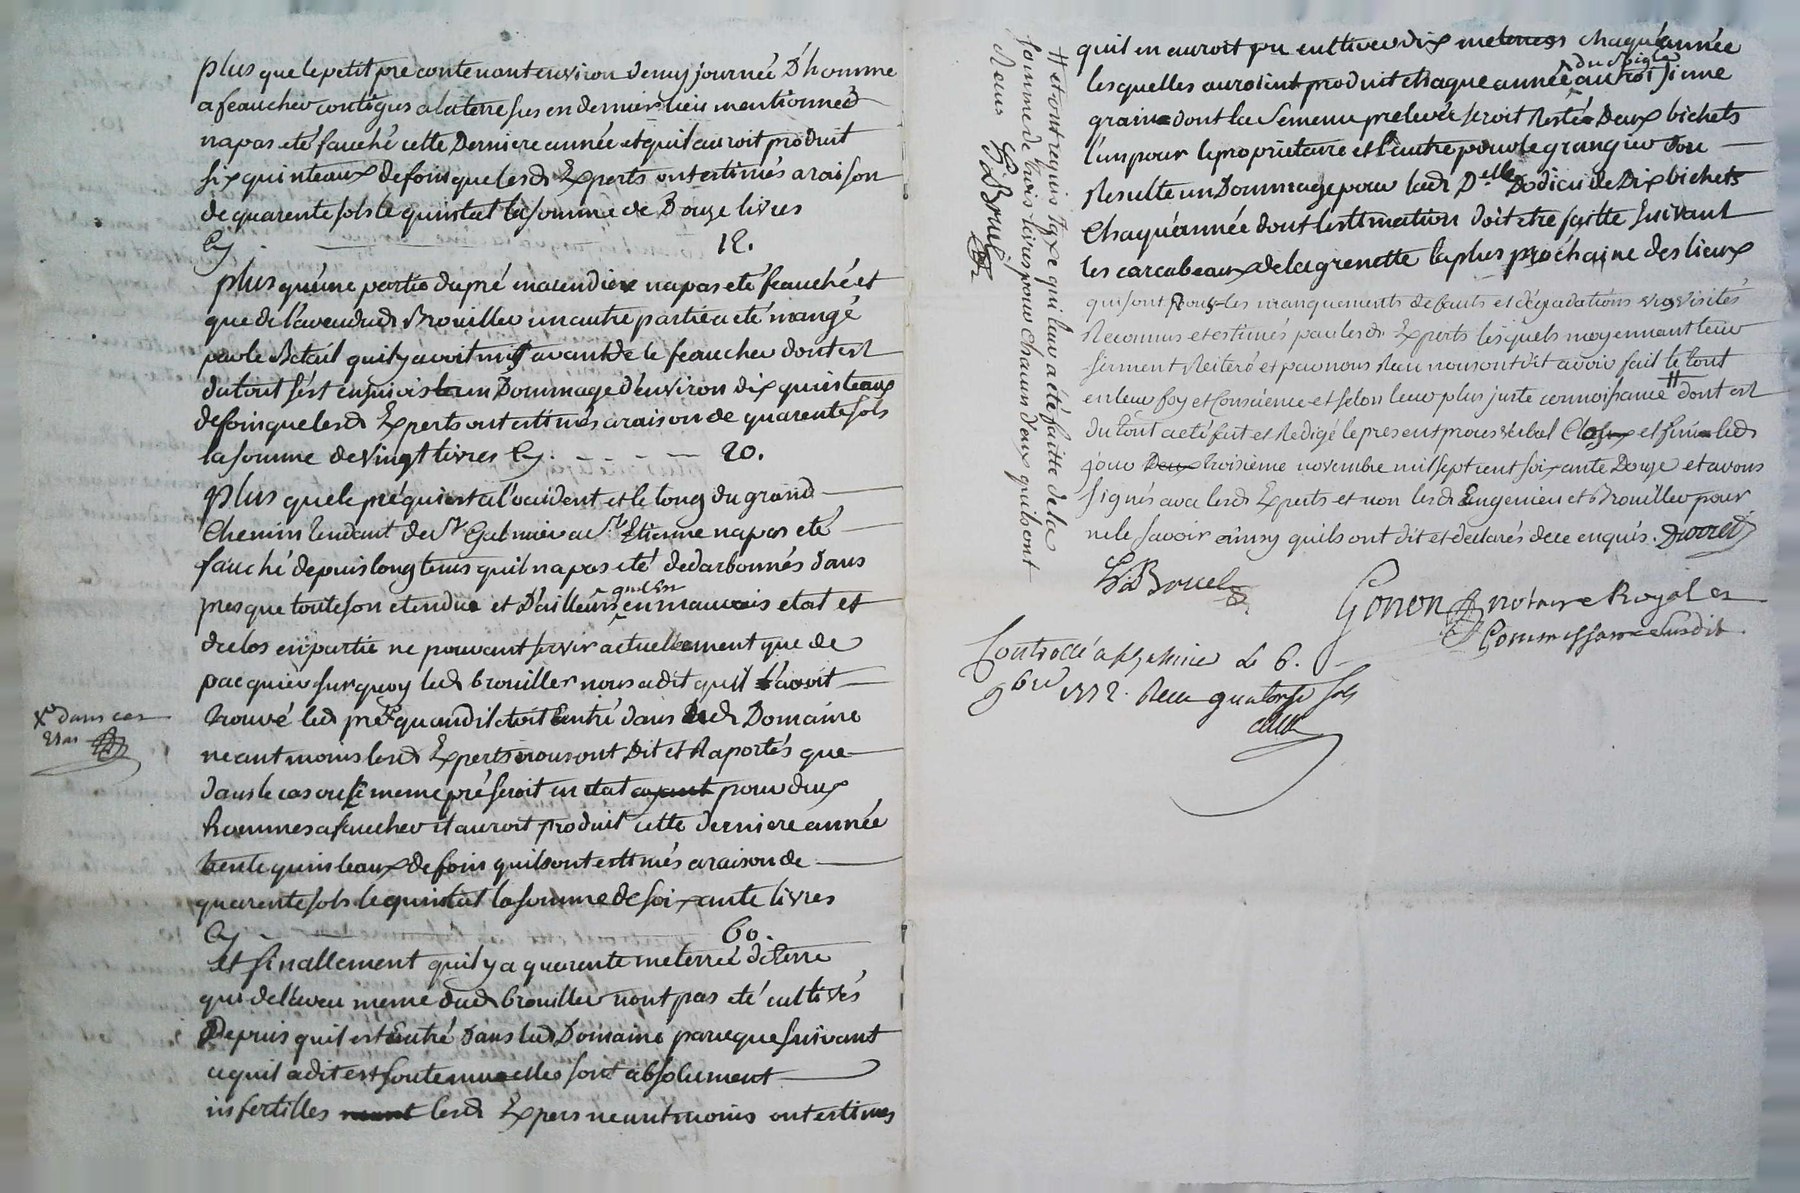 plus que le petit pré contenant environ demy journeé D'homme
a feaucher contigus a la terre sus en dernier lieu mentionneé
na pas eté fauché cette Derniere année et quil auroit produit
six quinteaux de foin que lesd Experts ont estimés a raison
de quarente sols le quintal la somme de Douze livres
Cy. 12.
plus qu'une partie du pré na pas eté feauché et
que de l'aveu dud Brouiller un autre partie a eté mangé
par le Betail quil y avoit mis avant de le feaucher dont est
du tout s'est ensuivis un Dommage d'environ dix quinteaux
de foin que lesd Experts ont estimés a raison de quarente sols
la somme de vingt livres Cy. - - - - 20.
Plus que le pré qui est a l'occident et le long du grand
Chemin tendant de St Galmier a St Etienne na pas eté
fauché depuis longtems quil na pas eté dans
presque toute son etendue et D'ailleurs quil est en mauvais etat et
declos en partie ne pouvant servir actuellement que de
pacquier surquoy led brouiller nous a dit quil l'avoit
trouvé led pré quand il etoit Entré dans led Domaine
Xo dans cet
Etat
neantmoins lesd Experts nous ont Dit et Raportés que
dans le cas ou le meme pré seroit en etat ayant pour deux
hommes a faucher il auroit produit cette derniere année
trente quinteaux de foin quils ont estimés a raison de
quarente sols le quintal la somme de soixante livres
Cy. 60.
et finallement quil y a quarente meterreé de terre
qui de l'aveu meme dud brouiller nont pas eté cultivés
Depuis quil est Entré dans led Domaine parceque suivant
ce quil a dit et soutenu elles sont absolument
infertilles lesd Expers neantmoins ont estimes
quil en auroit pu cultiver dix meterres chaque année
lesquelles auroient produit chaque année du Seigle au troisieme
grain dont la Semence prelevée seroit Resté Deux bichets
l'un pour le proprietaire et l'autre pour le granger dou
Resulte un Dommage pour lad Delle Dodieu de Dix bichets
Chaque année dont l'estimation doit etre faitte suivant
les carcabeaux de la grenette la plus prochaine des lieux
qui sont tous les manquements defauts et degradations vus visités
Reconnus et estimés par lesd Experts lesquels moyennant leur
serment Reiteré et par nous Receu nous ont dit avoir fait le tout
en leur foy et Conscience et selon leur plus juste connoissance # dont est
du tout a eté fait et Redigé le present proces verbal Clos et fini led
jour Deux troisieme novembre mil sept cent soixante Douze et avons
signés avec lesd Experts et non lesd Engenieu et Brouiller pour
ne le savoir ainsy quils ont dit et declarés de ce enquis.
# et ont requis taxe qui leur a eté faitte de la
somme de trois livres pour chacun d'eux quils ont
Receus
Gonon notaire Royal et
Commissaire Susdit
Controllé a St Galmier Le 6.
9bre 1772. Reçu quatorze sols